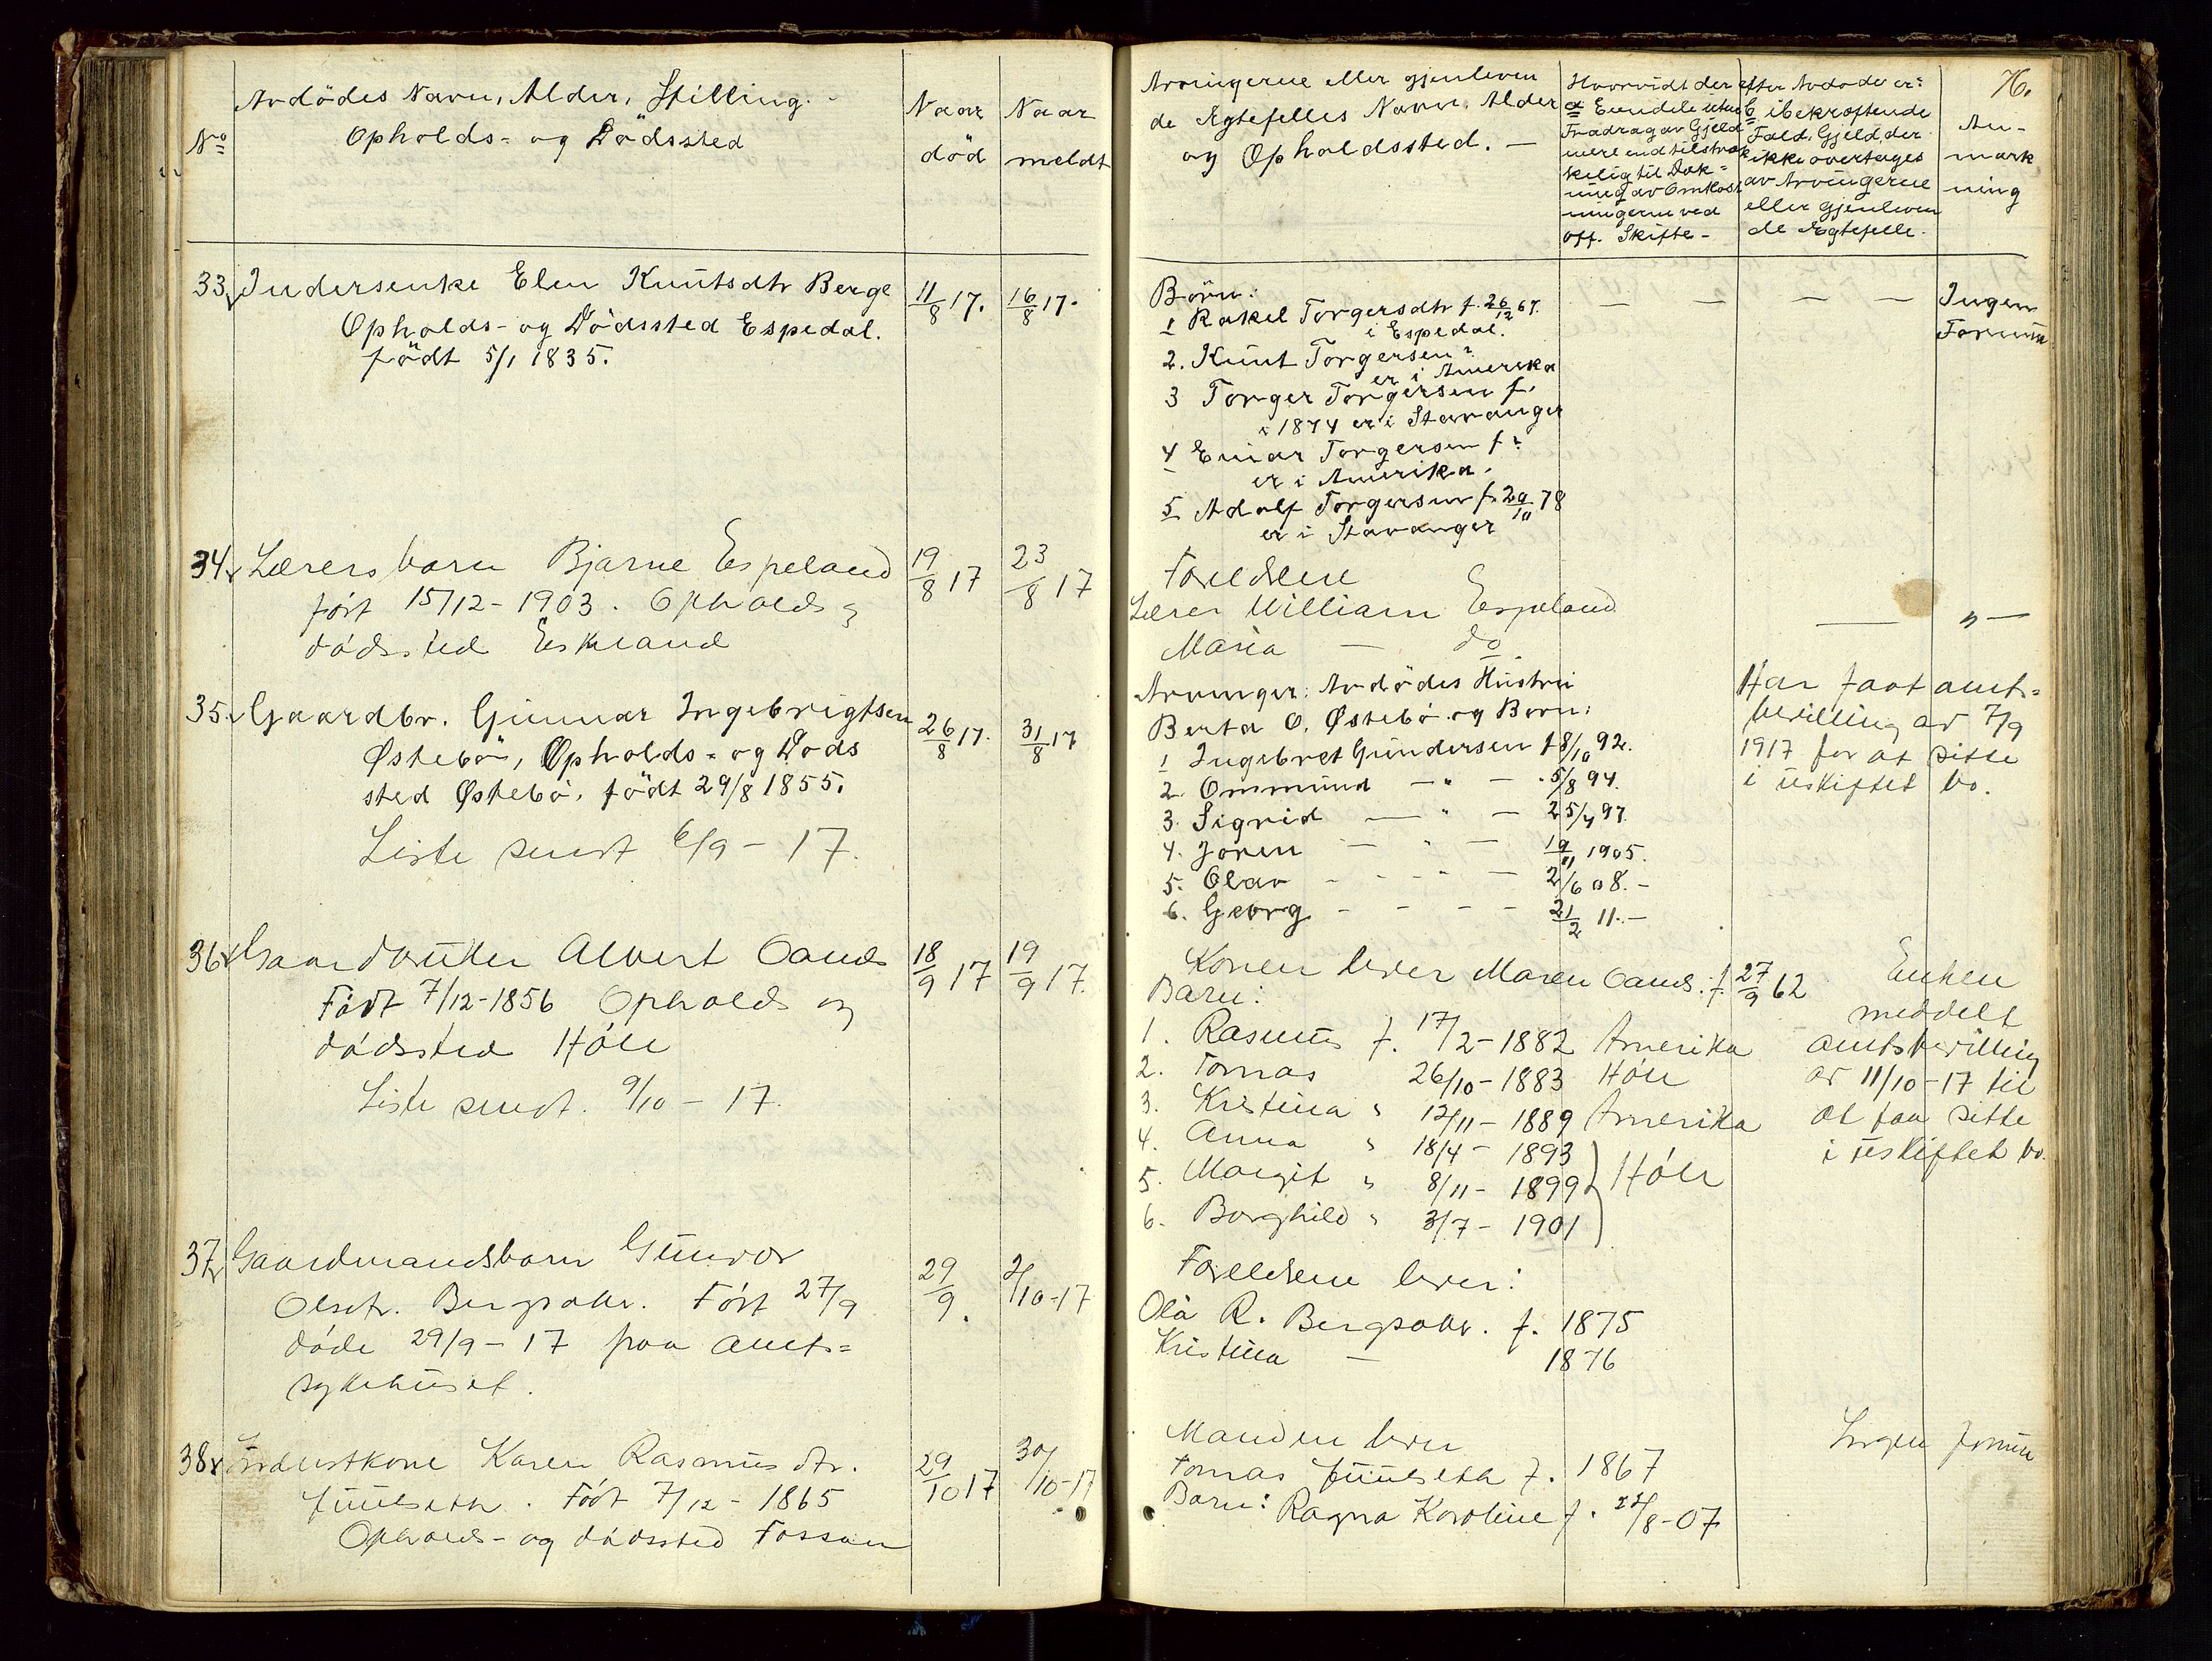 No
Avdödes Navn, Alder, Stilling.
Opholds- og Dødssted
Naar
död
Naar
meldt
33. Elen Knutsdtr Berge
Opholds- og Dödssted Espedal.
födt 5/1 1835.
11/8 17.
16/8 17.
34. Lærersbarn Bjarne Espeland
født 15/12-1903. Opholds og
dødssted Eskeland
19/8 17
23/8 17
35. Gaardbr. Gunnar Ingebrigtsen
Østebö, Opholds- og Döds
sted Østebö, födt 29/8 1855.
Liste sendt 6/9 - 17.
26/8 17.
31/8 17
36. Gaardbruker Albert Oanes
Født 7/12-1856 Opholds og
dødssted Høle
Liste sendt. 9/10 - 17.
18/9 17
19/9 17.
37. Gaardmandsbarn Gunvor
Olsdtr. Bergsaker. Født 27/9
døde 29/9 - 17 paa Amts=
sykehuset.
29/9.
2/10-17
38. Karen Rasmusdtr.
Født 7/12 - 1865
Opholds- og dødssted Fossan
29/10 17
30/10-17
76.
Arvingerne eller gjenleven
de Ægtefelles Navn, Alder
og Opholdssted. —
Hvorvidt der efter Avdøde er:
a Eiendele uten
Fradrag av Gjeld
mere end tilstræk
kelig til Dæk-
ning av Omkost
ningerne ved
off. Skifte -
b, i bekræftende
Fald, Gjeld, der
ikke overtages
av Arvingerne
eller gjenleven
de Ægtefelle.
An-
mærk
ning
Börn:
1 Rakel Torgersdtr f. 26/12 67.
i Espedal.
2. Knut Torgersen ?
er i Amerika
3 Torger Torgersen f.
i 1874 er i Stavanger
4 Einar Torgersen f ?
er i Amerika.
5 Adolf Torgersen f. 29/10 78
er i Stavanger
Ingen
Formue
Foreldrene
Lærer William Espeland
Maria — do
— " —
Arvinger: Avdödes Hustru
Berta O. Østebö og Börn:
1 Ingebret Gundersen f 8/10 92.
2. Ommund — " — 5/8 94.
3. Sigrid — " — 25/4 97.
4. Joren — " — 19/11 1905.
5. Olav - - " — 2/6 08. -
6. Georg - - - - 21/2 11. -
Har faat amts=
bevilling av 7/9
1917 for at sitte
i uskiftet bo.
Konen lever Maren Oanes. f. 27/9 62
Barn:
1. Rasmus f. 17/2 - 1882 Amerika
2. Tomas 26/10 - 1883 Høle
3. Kristina " 12/11 - 1889 Amerika
4. Anna " 18/4 - 1893
5. Margit " 8/11 - 1899 } Høle
6. Borghild " 3/7 - 1901
Enken
meddelt
amtsbevilling
av 11/10-17 til
at faa sitte
i uskiftet bo.
Foreldrene lever:
Ola R. Bergsaker. f. 1875
Kristina — 1876
Manden lever
Tomas f. 1867
Barn: Ragna Karoline f. 22/8-07
Ingen formue